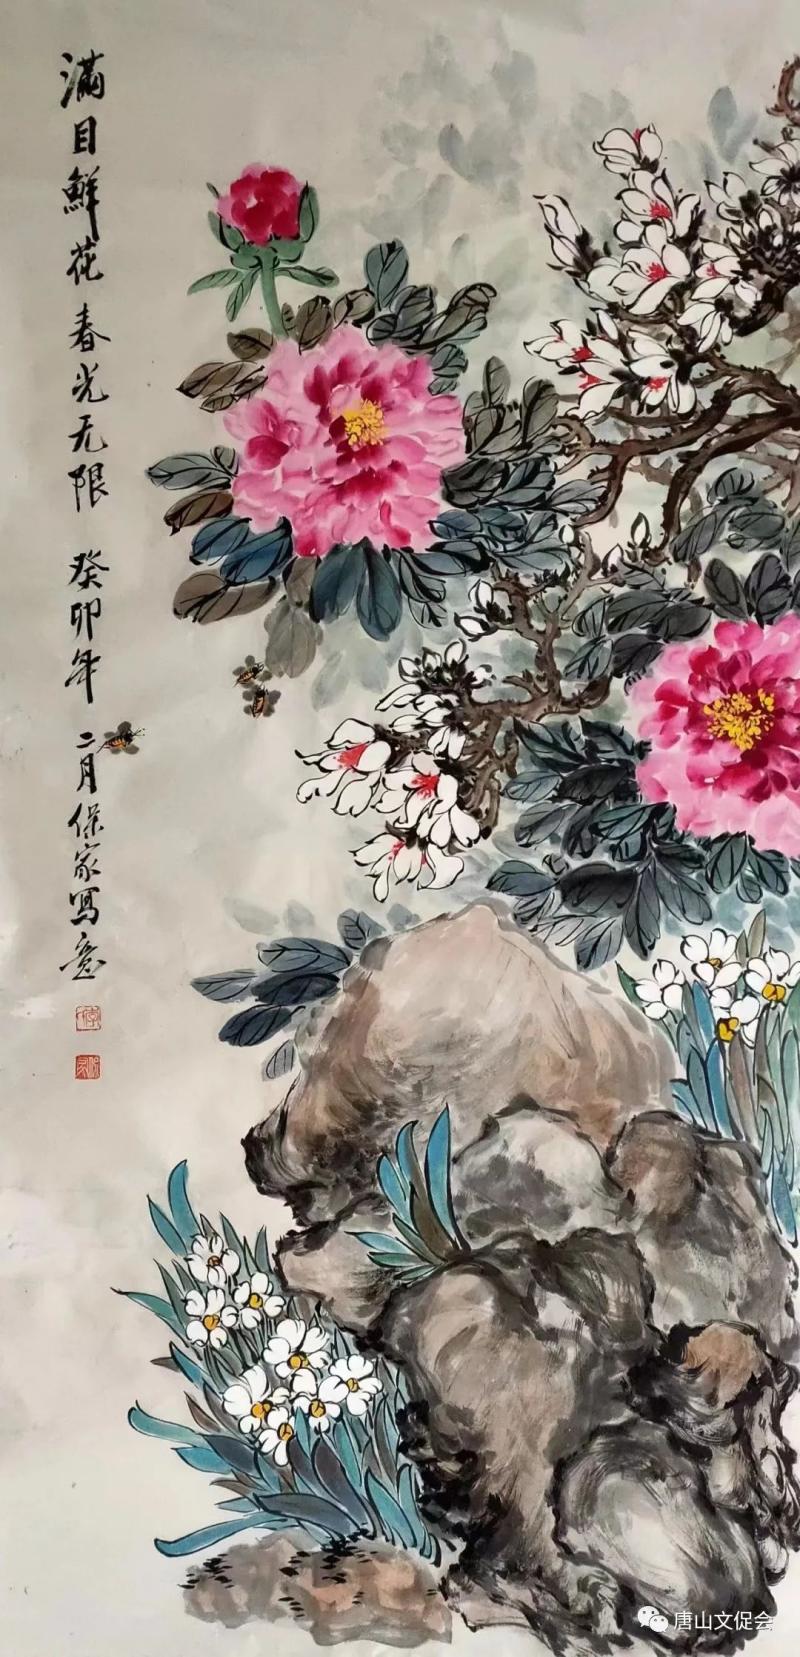 滿目鮮花春光无限 癸卯年二月保家写意
唐山文促会